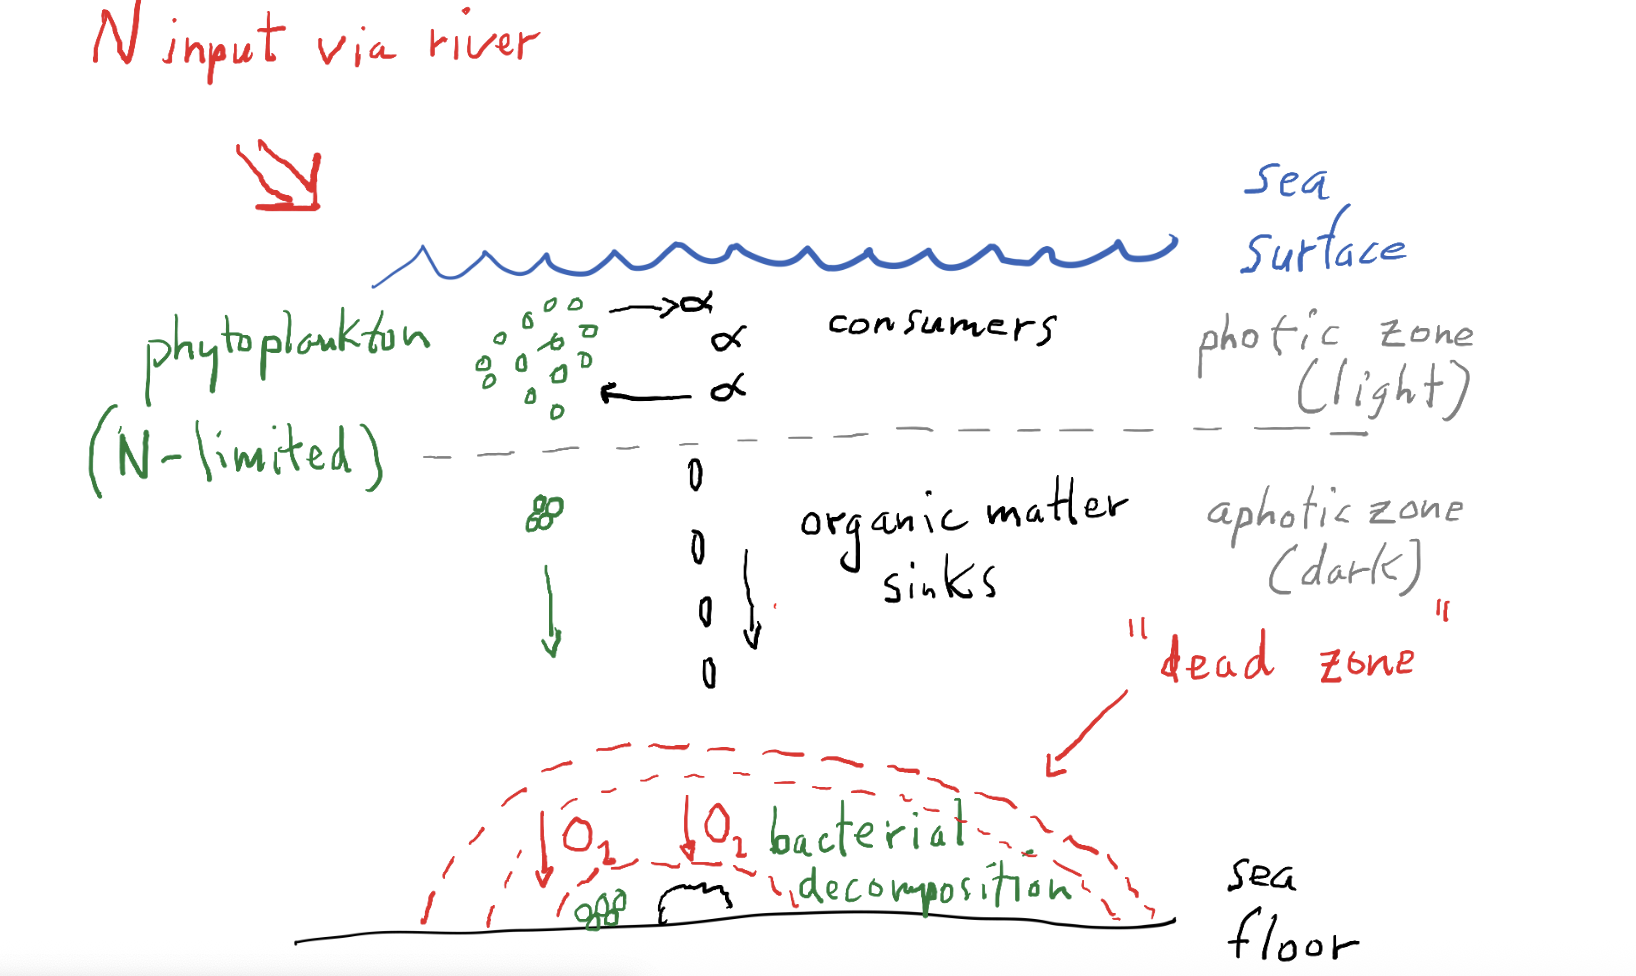 N input via river
sea
surface
phytoplankton
(N-limited)
α
α
α
consumers
photic zone
(light)
organic matter
sinks
aphotic zone
(dark)
"dead zone"
O2
O2
bacterial
decomposition
sea
floor